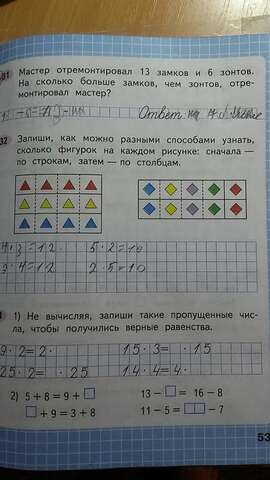 91
Мастер отремонтировал 13 замков и 6 зонтов.
На сколько больше замков, чем зонтов, отре-
монтировал мастер?
Ответ:
32
Запиши, как можно разными способами узнать,
сколько фигурок на каждом рисунке: сначала —
по строкам, затем — по столбцам.
4·3=12 5·2=10
3·4=12 2·5=10
1) Не вычисляя, запиши такие пропущенные чис-
ла, чтобы получились верные равенства.
9·2=2· 15·3= ·15
25·2= ·25 14·4=4·
2) 5 + 8 = 9 + □ 13 − □ = 16 − 8
□ + 9 = 3 + 8 11 − 5 = □□ − 7
53